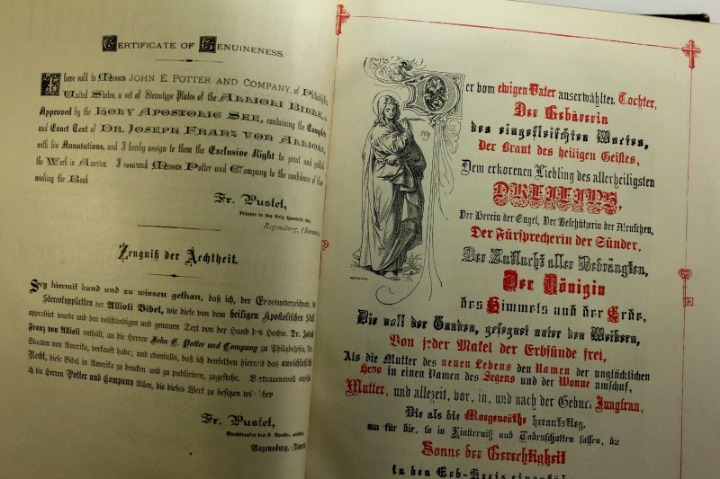 CERTIFICATE OF GENUINENESS.
I have sold to Messrs JOHN E. POTTER AND COMPANY, of Philadelphia,
United States, a set of Stereotype Plates of the ALLIOLI BIBLE,
Approved by the HOLY APOSTOLIC SEE, containing the Complete
and Exact Text of DR. JOSEPH FRANZ VON ALLIOLI,
with his Annotations, and I hereby assign to them the Exclusive Right to print and publish
the Work in America. I commend Messrs Potter and Company to the confidence of those
wishing the Book
Fr. Pustet,
Printer to the Holy Apostolic See,
Regensburg,
Zeugniß der Achtheit.
Sey hiermit kund und zu wissen gethan, daß ich, der Endesunterzeichnete,
Stereotypplatten der Allioli Bibel, wie diese von dem heiligen Apostolischen Stuhl
approbirt wurde und den vollständigen und genauen Text von der Hand des Hochw. Dr. Joseph
Franz von Allioli enthält, an die Herren John E. Potter und Company zu Philadelphia,
Staaten von Amerika, verkauft habe; und ebenfalls, daß ich denselben hiermit das ausschließliche
Recht, diese Bibel in Amerika zu drucken und zu publiciren, zugestehe. Vertrauensvoll
ich die Herren Potter und Company Allen, die dieses Werk zu besitzen
Fr. Pustet,
Regensburg,
Der vom ewigen Vater auserwählten Tochter,
Der Gebärerin
des eingefleischten Wortes,
Der Braut des heiligen Geistes,
Dem erkorenen Liebling des allerheiligsten
Der Herrin der Engel, Der Beschützerin der Menschen,
Der Fürsprecherin der Sünder,
Der Zuflucht aller Bedrängten,
Der Königin
des Himmels und der Erde,
Die voll der Gnaden, gesegnet unter den Weibern,
Von jeder Makel der Erbsünde frei,
Als die Mutter des neuen Lebens den Namen der unglücklichen
Heva in einen Namen des Segens und der Wonne umschuf,
Mutter, und allezeit, vor, in, und nach der Geburt Jungfrau,
Die als die Morgenröthe heraufstieg,
um für die, so in Finsterniß und Todesschatten saßen, die
Sonne der Gerechtigkeit
in den Erd-Kreis